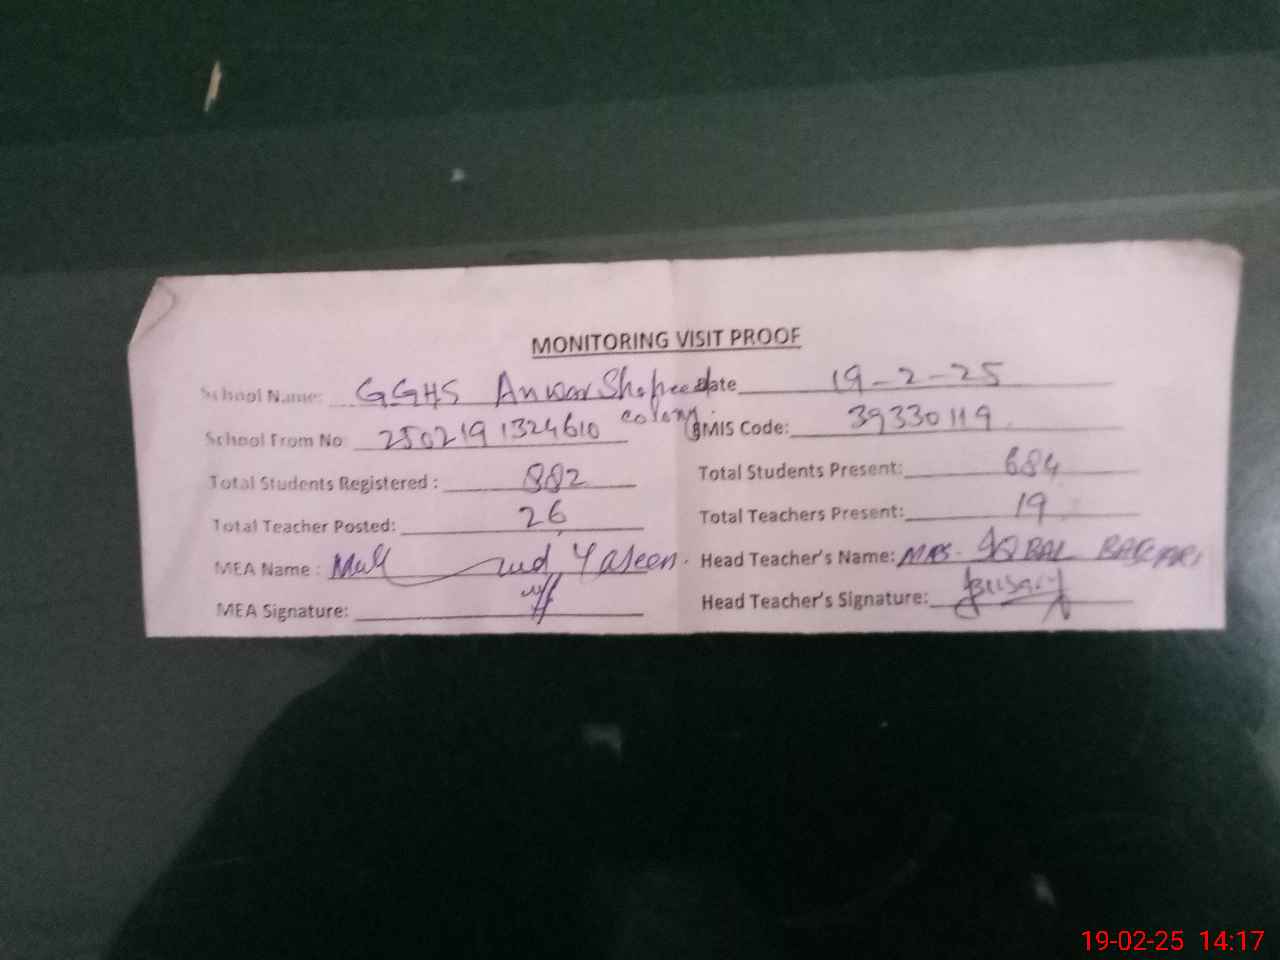 MONITORING VISIT PROOF
School Name: GGHS Anwar Shaheed colony Date 19-2-25
School From No: 2502191324610 EMIS Code: 39330119
Total Students Registered : 882 Total Students Present: 684
Total Teacher Posted: 26 Total Teachers Present: 19
MEA Name : Yaseen. Head Teacher's Name: MRS. IQBAL
MEA Signature: Head Teacher's Signature:
19-02-25 14:17